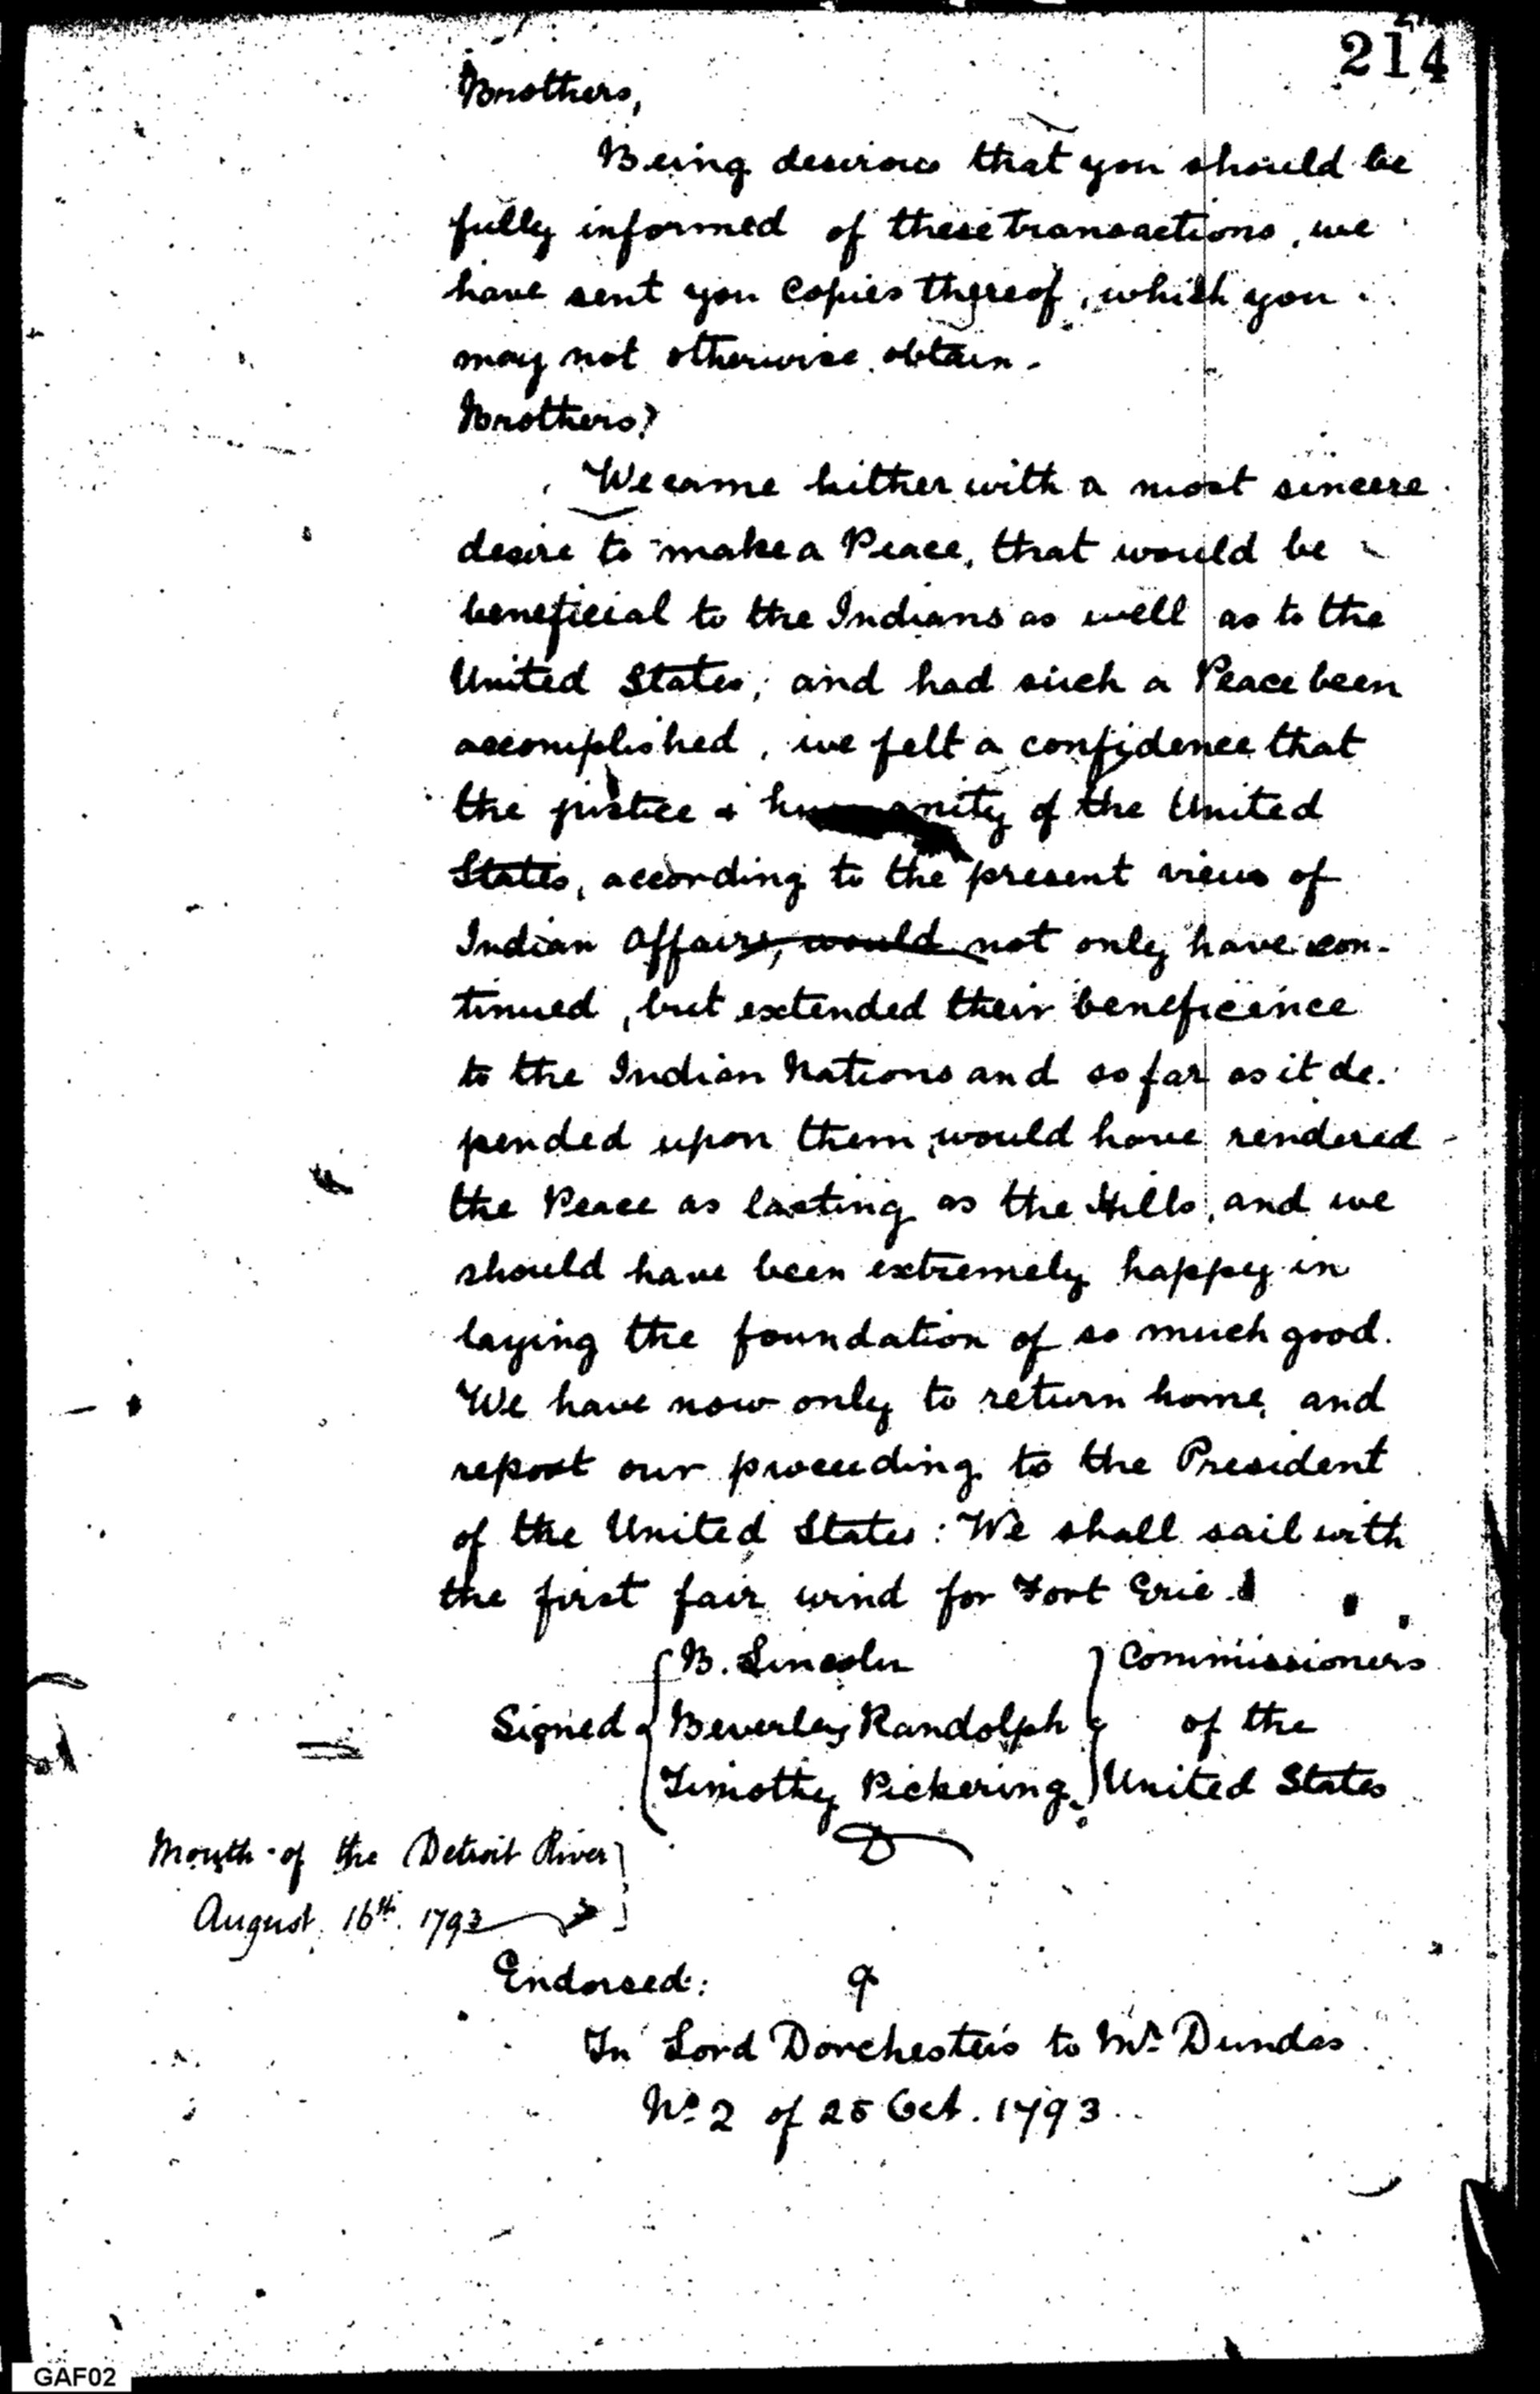 214
Brothers,
Being desirous that you should be
fully informed of these transactions, we
have sent you Copies thereof, which you
may not otherwise obtain.
Brothers?
We came hither with a most sincere
desire to make a Peace, that would be
beneficial to the Indians as well as to the
United States, and had such a Peace been
accomplished, we felt a confidence that
the justice & humanity of the United
States, according to the present views of
Indian Affairs, would not only have con-
tinued, but extended their beneficence
to the Indian Nations and so far as it de-
pended upon them, would have rendered
the Peace as lasting as the Hills, and we
should have been extremely happy in
laying the foundation of so much good.
We have now only to return home, and
report our proceeding to the President
of the United States: We shall sail with
the first fair wind for Fort Erie.
B. Lincoln Commissioners
Signed Beverley Randolph of the
Timothy Pickering. United States
Mouth of the Detroit River
August 16th. 1793
Endorsed:
In Lord Dorchester's to Mr. Dundas
No. 2 of 25 Oct. 1793.
GAF02